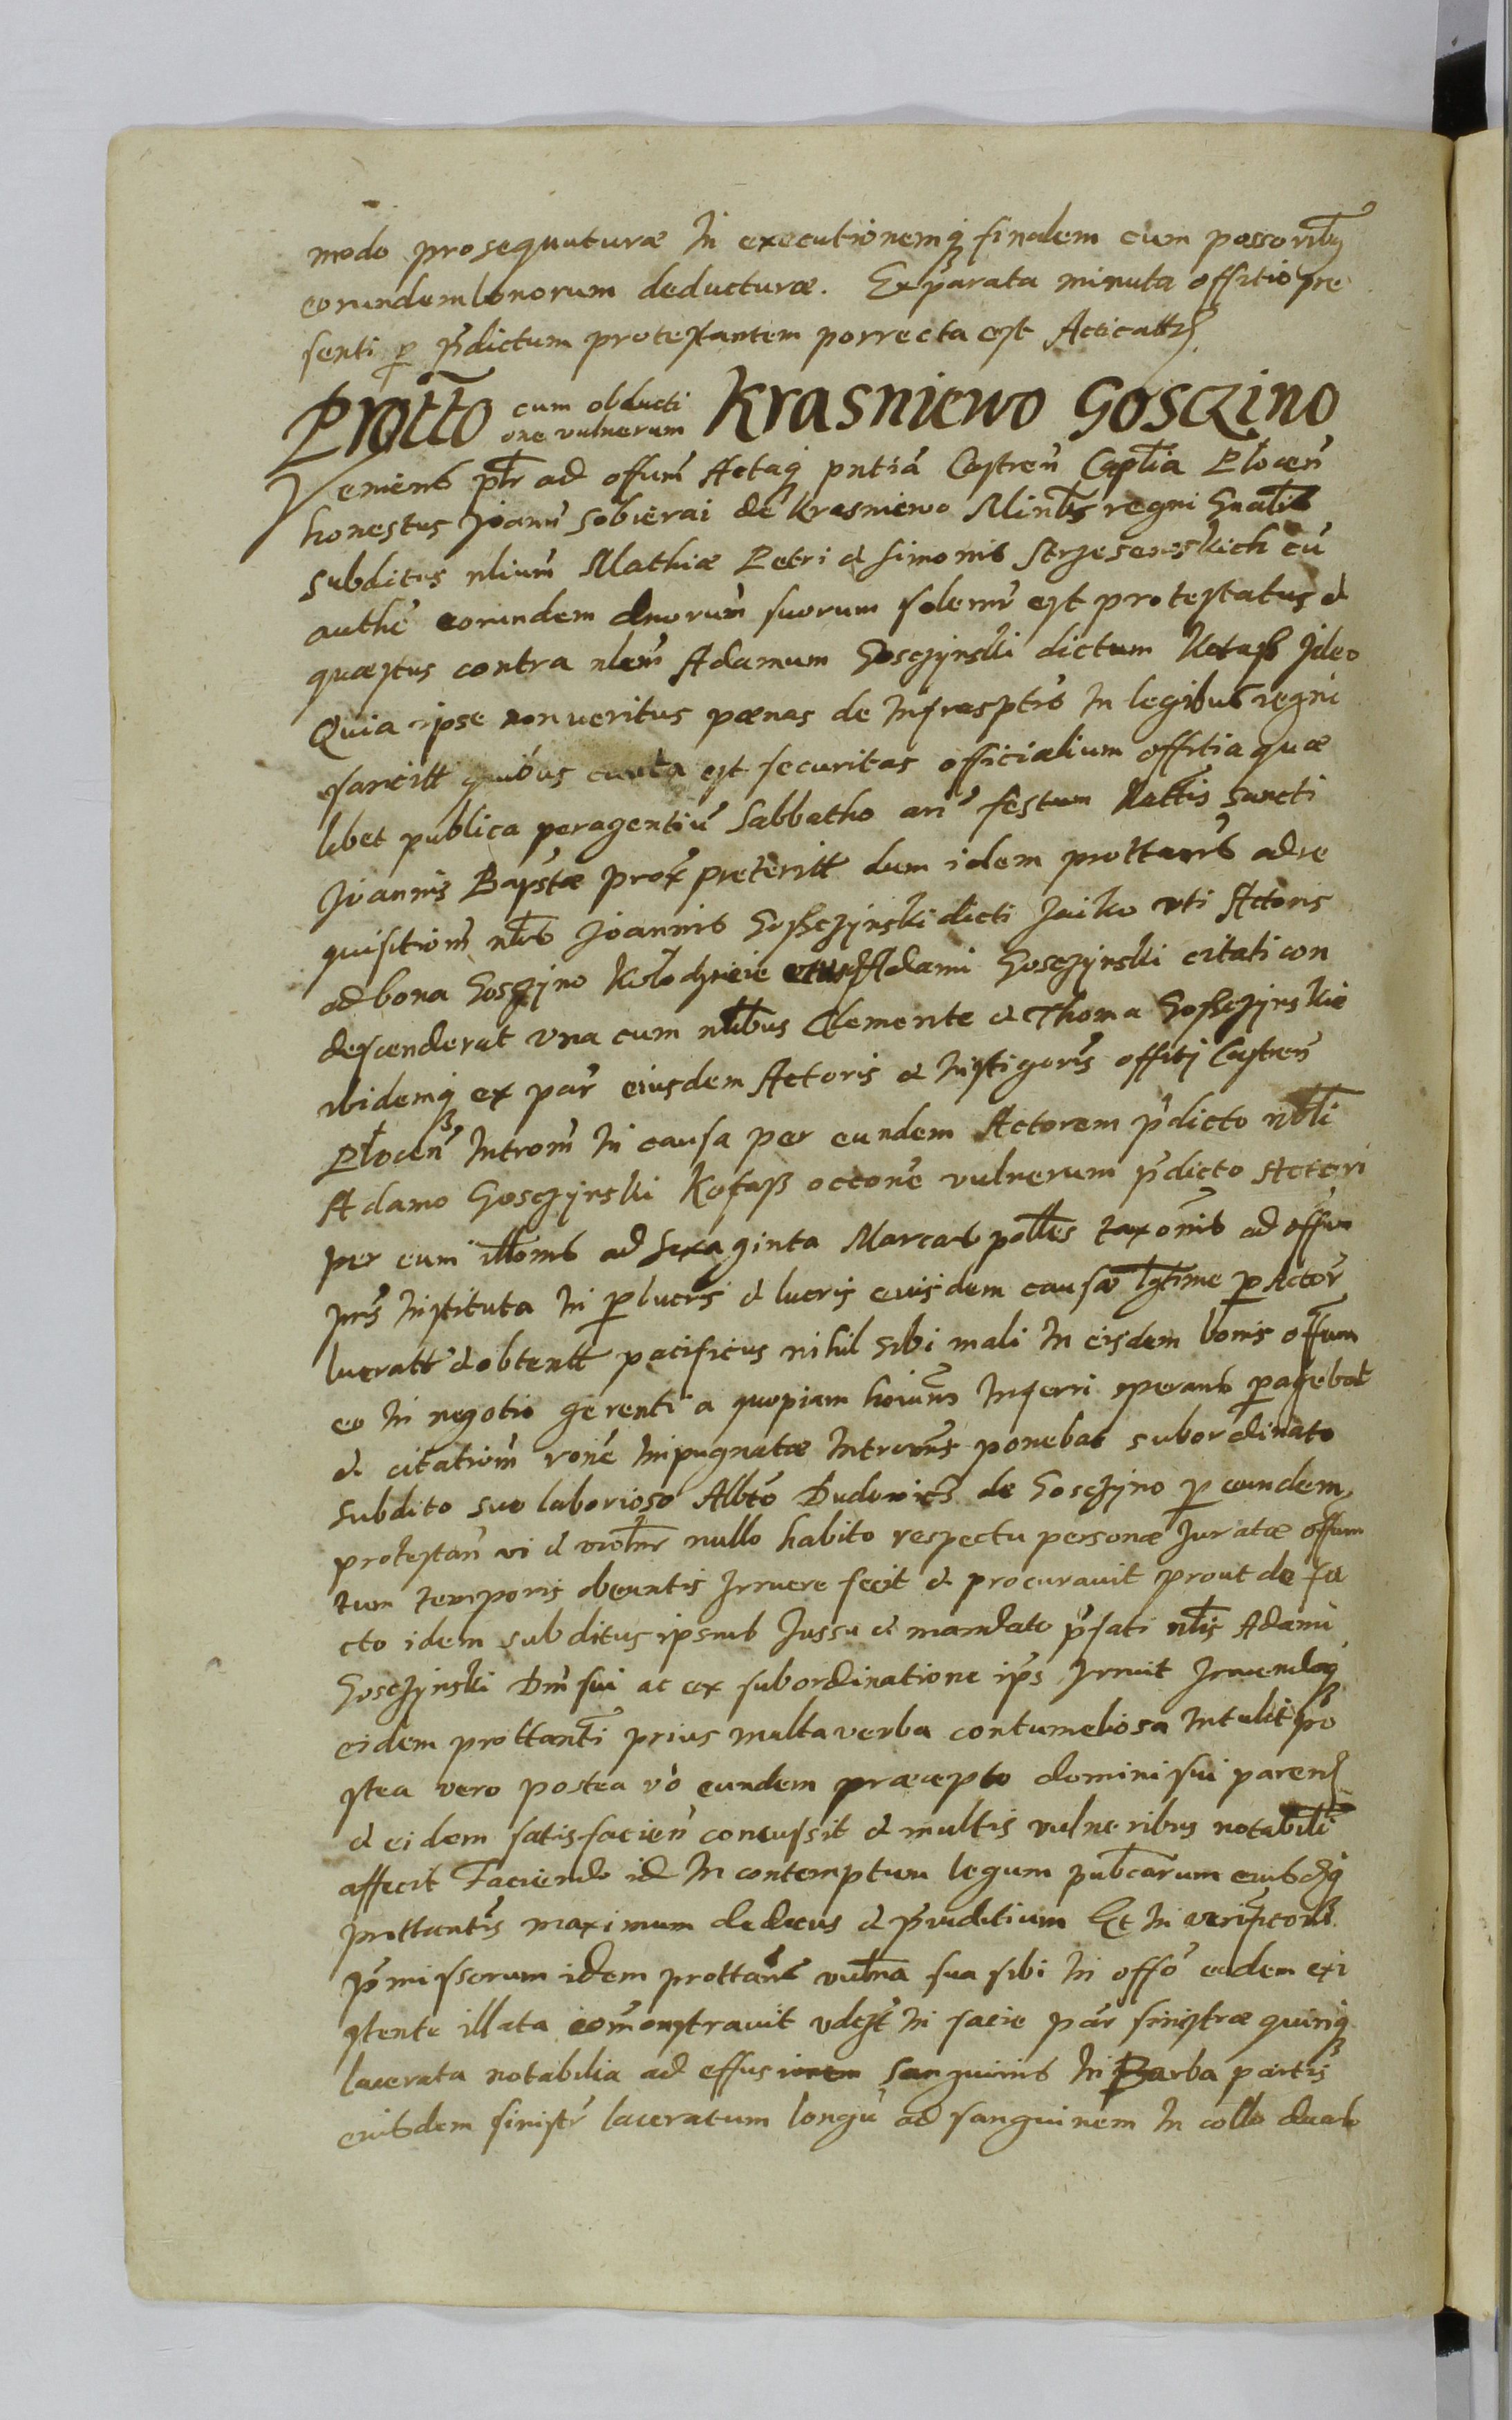 modo prosequuturæ In executionemq finalem cum possoribq
eorundem bonorum deducturæ. Ex parata minuta offitio pre
senti p pdictum protestantem porrecta est Acticattr
Protto cum obducti
one vulnerum Krasniewo Gosczino
Veniens pltr ad offum Actaq pntia Castren Capltia Plocen
honestus Joann Sobierai de Krasniewo Minlis regni Gnalis
subditus nlium Mathiæ Petri et Simonis Strzeseroskich cu
authe eorundem dnorum suorum solemr est protestatus et
quæstus contra nlem Adamum Gosczynski dictum Kotass Ideo
Quia ipse non veritus pœnas de Infrasptis In legibus regni
sancitt quibus cauta est securitas officialium offitia quæ
libet publica peragentiu Sabbatho an festum Nattis Sancti
Joannis Bapstæ prox preteritt dum idem prottans ad re
quisitiom nlis Joannis Gossczynski dicti Jaiko uti Actoris
ad bona Gosczyno Kołodzieie Adami Gosczynski citati con
descenderat una cum nlibus Clemente et Thoma Gossczynskie
ibidemq ex par eiusdem Actoris et Instigoris offitij Castren
Plocen Introm In causa per eundem Actorem pdicto nbli
Adamo Gosczynski Kotass occone vulnerum pdicto Actori
per eum illoms ad Sexaginta Marcas polles taxonis ad offum
pns Instituta In p lucris et lucris eiusdem causæ lgtime p Actor
lucratt et obtentt pacificus nihil sibi mali In eisdem bonis offum
eo In negotio gerenti a quopiam hoium Inferri sperans pagebat
et citatiom rone Impugnatæ Intromis ponebat subordinato
subdito suo laborioso Albto Dudowicz de Gosczyno p eundem
protestan vi et violntr nullo habito respectu personæ Juratæ offum
tum temporis obeuntis Irruere fecit et procuravit prout de fa
cto idem subditus ipsius Jussu et mandato pfati nlis Adami
Gosczynski Dni sui ac ex subordinatione ips Irruit Irruendoq
eidem prottanti prius multa verba contumeliosa Intulit po
stea vero postea vo eundem præcepto domini sui paren
et eidem satisfacien concussit et multis vulneribus notabili
affecit Faciendo id In contemptum legum publcarum eiusdq
prottantis maximum dedecus et pruditium Et In verifictois
pmissorum idem prottans vulna sua sibi In offo eodem exi
stente illata comonstravit vdest In facie par sinistræ quinq
lacerata notabilia ad effusionem Sanguinis In Barba partis
eiusdem sinistr laceratum longu ad sanguinem In collo duab